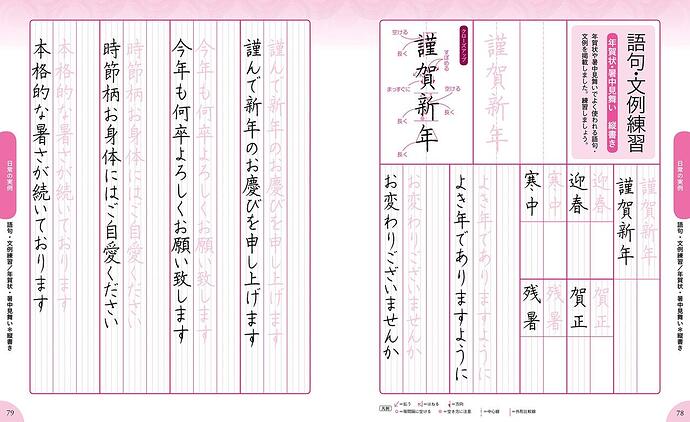 語句・文例練習
年賀状・暑中見舞い 縦書き
年賀状や暑中見舞いでよく使われる語句・
文例を掲載しました。練習しましょう。
謹賀新年
クローズアップ
空ける
長く
すぼめる
まっすぐに
空ける
長く
長く
長く
謹賀新年
謹賀新年
謹賀新年
迎春
迎春
賀正
賀正
寒中
寒中
残暑
残暑
よき年でありますように
よき年でありますように
お変わりございませんか
お変わりございませんか
日常の実例
語句・文例練習/年賀状・暑中見舞い*縦書き
凡例
=払う
=はねる
=方向
=等間隔に空ける
=空き方に注意
=中心線
=外形比較線
78
謹んで新年のお慶びを申し上げます
謹んで新年のお慶びを申し上げます
今年も何卒よろしくお願い致します
今年も何卒よろしくお願い致します
時節柄お身体にはご自愛ください
時節柄お身体にはご自愛ください
本格的な暑さが続いております
本格的な暑さが続いております
日常の実例
語句・文例練習/年賀状・暑中見舞い*縦書き
79